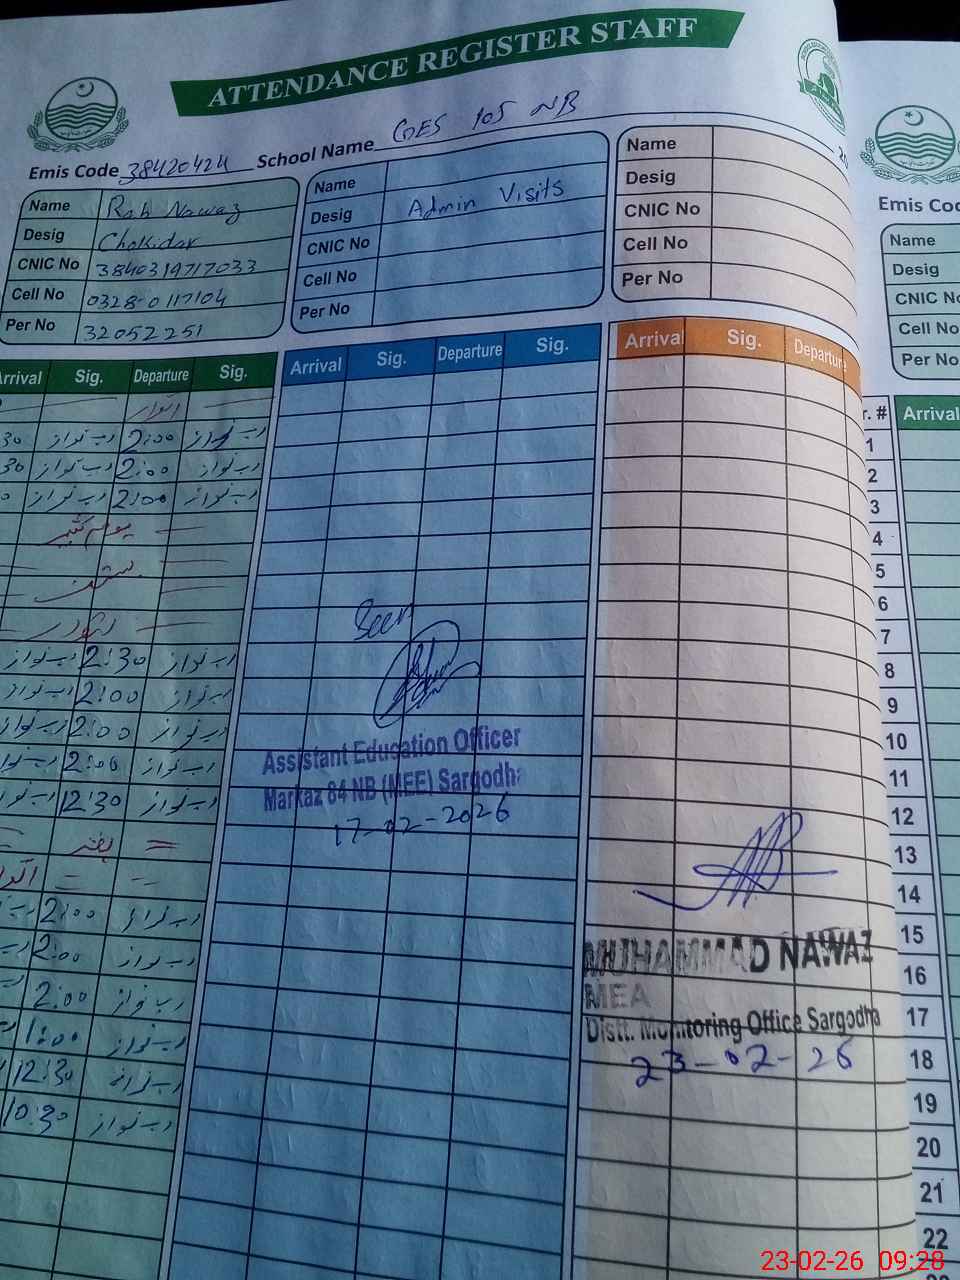 ATTENDANCE REGISTER STAFF
Emis Code 38420424 School Name GES 105 NB
Name Rab Nawaz
Desig Chokidar
CNIC No 3840319717033
Cell No 0328-0117104
Per No 32052251
Name
Desig Admin Visits
CNIC No
Cell No
Per No
Name
Desig
CNIC No
Cell No
Per No
Emis Cod
Name
Desig
CNIC No
Cell No
Per No
Arrival Sig. Departure Sig.
اتوار
30 رب نواز 2:00 رب نواز
30 رب نواز 2:00 رب نواز
رب نواز 2:00 رب نواز
یوم کشمیر
ہفتہ
اتوار
رب نواز 2:30 رب نواز
رب نواز 2:00 رب نواز
رب نواز 2:00 رب نواز
رب نواز 2:00 رب نواز
رب نواز 12:30 رب نواز
ہفتہ
اتوار
2:00 رب نواز
2:00 رب نواز
2:00 رب نواز
1:00 رب نواز
12:30 رب نواز
10:30 رب نواز
Arrival Sig. Departure Sig.
Seen
Assistant Education Officer
Markaz 84 NB (MEE) Sargodha
17-02-2026
Arrival Sig. Departure
MUHAMMAD NAWAZ
MEA
Distt. Monitoring Office Sargodha
23-02-26
r. # Arrival
1
2
3
4
5
6
7
8
9
10
11
12
13
14
15
16
17
18
19
20
21
22
23-02-26 09:28